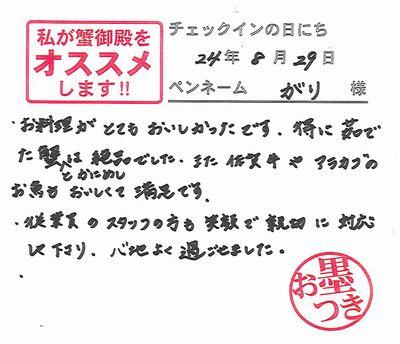 私が蟹御殿を
オススメ
します!!
チェックインの日にち
24年 8月 29日
ペンネーム がり 様
・お料理が とても おいしかったです。特に 茹で
た 蟹は 絶品でした。また 佐賀牛や アラカブの
とかにめし
お魚も おいしくて 満足です。
・従業員の スタッフの方も 笑顔で 親切に 対応
して下さり、心地よく 過ごせました。
・
お墨
つき